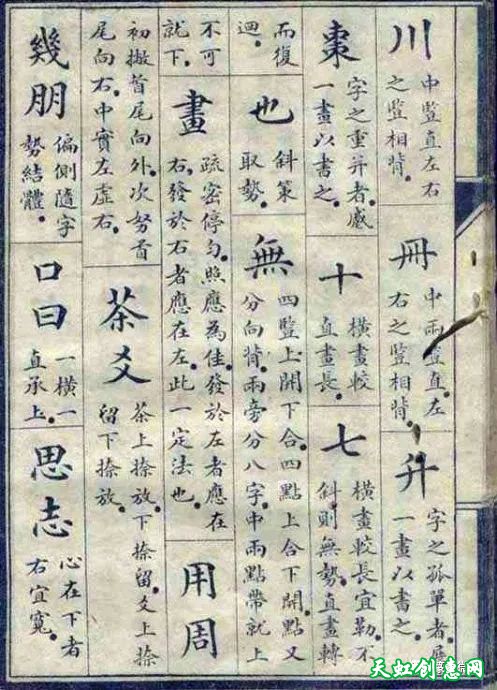 川
中豎直左右
之豎相背。
冊
中兩豎直。左
右之豎相背。
升
字之孤單者展
一畫以書之。
棗
字之重并者。蹙
一畫以書之。
十
橫畫較
直畫長。
七
橫畫較長宜勒。不
斜則無勢。直畫轉
而復
迴。
也
斜策
取勢。
無
四豎上開下合。四點上合下開。點又
分向背。兩旁分八字。中兩點帶就上
不可
就下。
畫
疏密停勻。照應為佳。發於左者應在
右。發於右者應在左。此一定法也。
用周
初撇首尾向外。次努首
尾向右。中實左虛右。
茶爻
茶上捺放。下捺留。爻上捺
留下捺放。
幾朋
偏側隨字
勢結體。
口曰
一橫一
直承上。
思志
心在下者
右宜寬。
天虹创意网